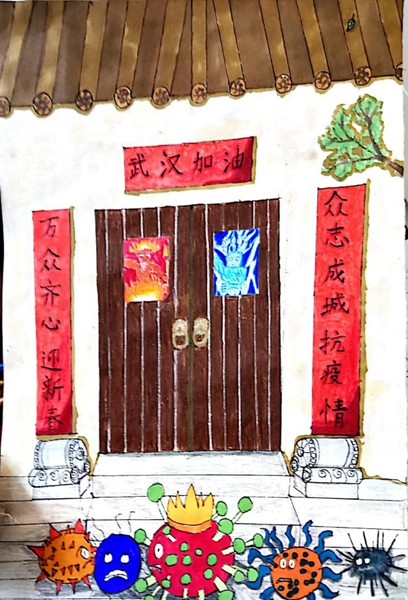 武汉加油
众志成城抗疫情
万众齐心迎新春